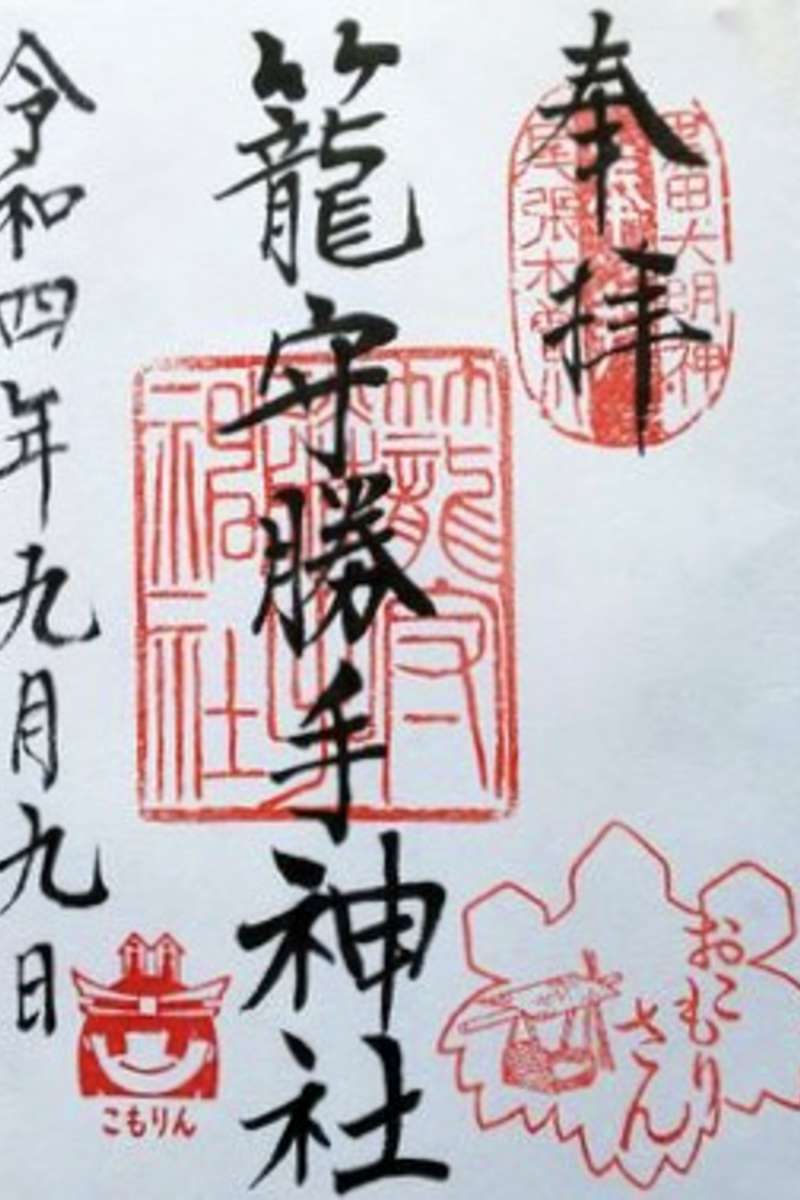 奉拝
籠守勝手神社
令和四年九月九日
籠守
神社
大明神
尾張木曽川
おこもり
さん
こもりん